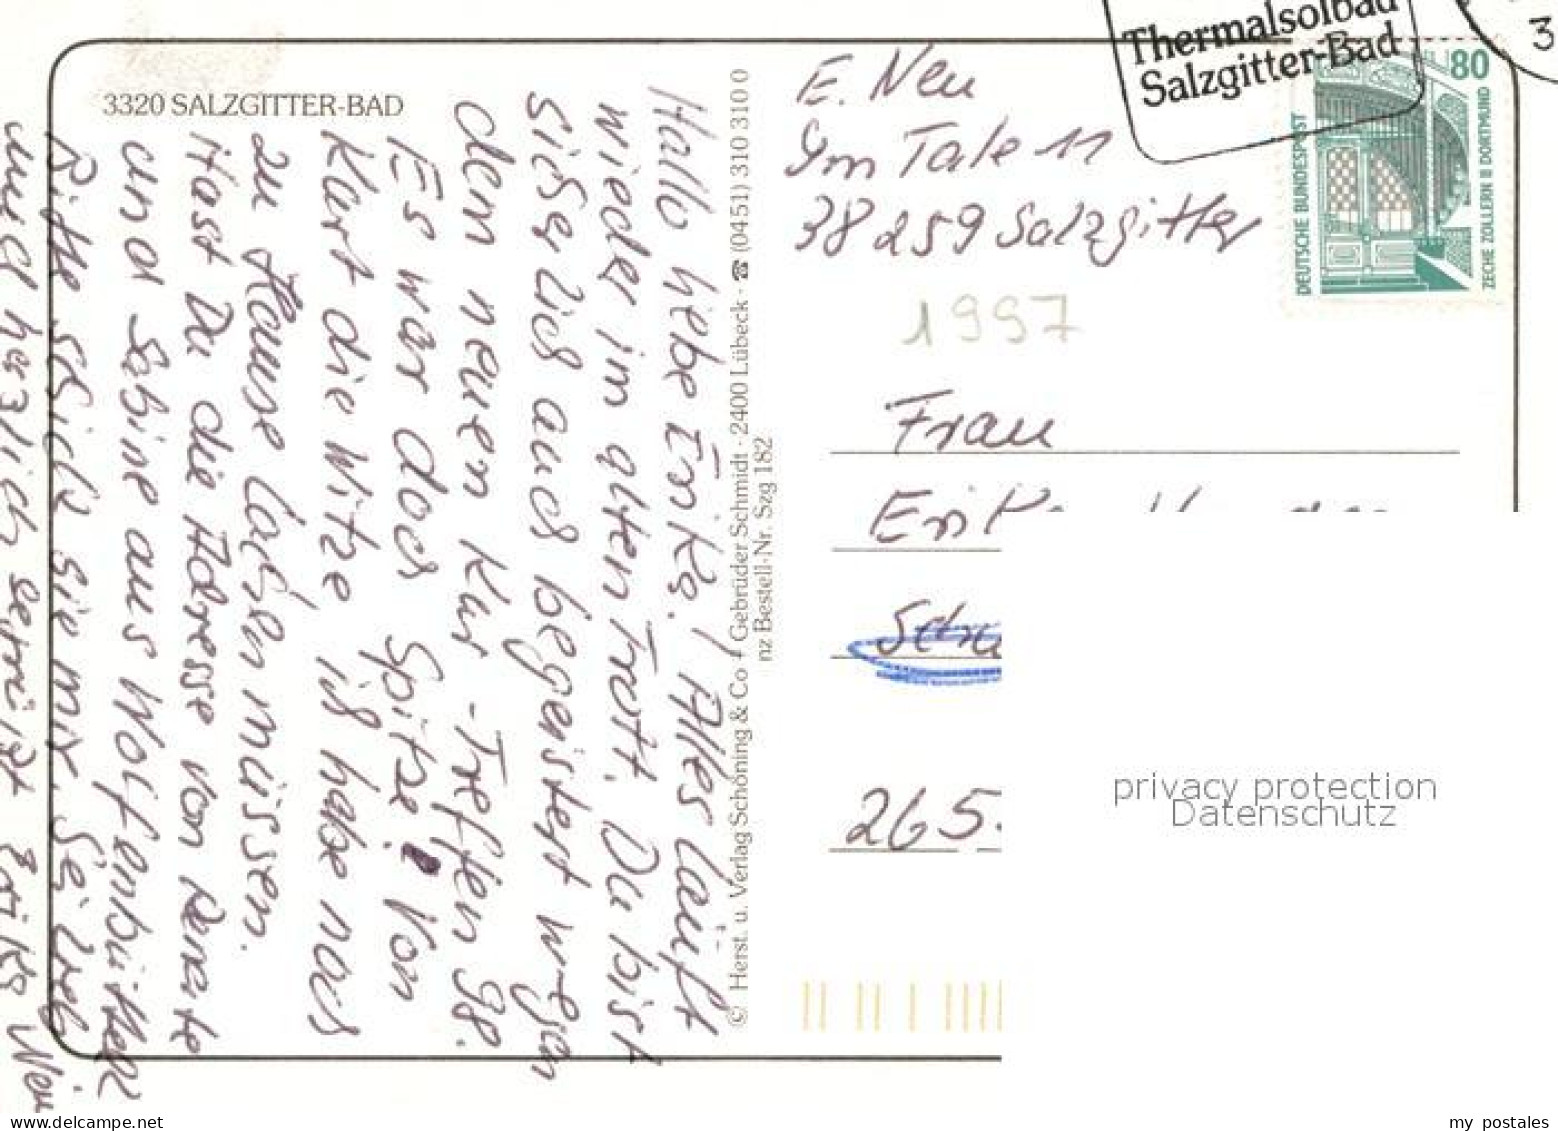 3320 SALZGITTER-BAD
Hallo liebe Erika! Alles läuft
wieder im alten Trott. Du bist
sicherlich auch begeistert wegen
dem neuen Kur-Treffen 98.
Es war doch Spitze! Von
Kurt die Witze, ich habe noch
zu Hause lachen müssen.
Hast Du die Adresse von Renate
und Sabine aus Wolfenbüttel
Bitte schick sie mir. Sei lieb
und herzlich gegrüßt Erika
© Herst. u. Verlag Schöning & Co + Gebrüder Schmidt · 2400 Lübeck · ☎ (0451) 310 310 0
nz Bestell-Nr. Szg 182
E. Neu
Im Tale 11
38259 Salzgitter
Thermalsolbad
Salzgitter-Bad
3
80
DEUTSCHE BUNDESPOST
ZECHE ZOLLERN II DORTMUND
1997
Frau
Erika
265
privacy protection
Datenschutz
my postales
www.delcampe.net